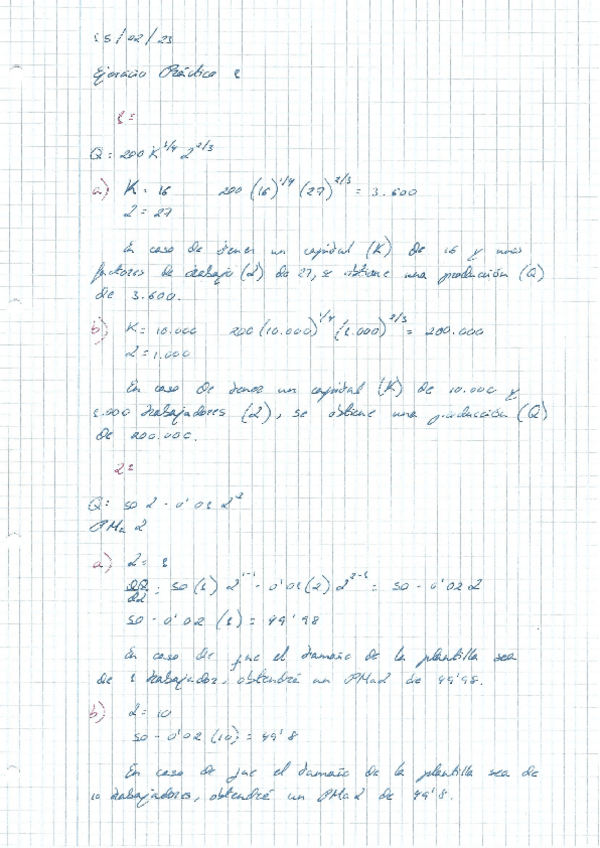 15/02/23
Ejercicio Práctico 1
1º
Q = 200 K^1/4 L^2/3
a) K = 16 200 (16)^1/4 (27)^2/3 = 3.600
L = 27
En caso de tener un capital (K) de 16 y unos
factores de trabajo (L) de 27, se obtiene una producción (Q)
de 3.600.
b) K = 10.000 200 (10.000)^1/4 (1.000)^2/3 = 200.000
L = 1.000
En caso de tener un capital (K) de 10.000 y
1.000 trabajadores (L), se obtiene una producción (Q)
de 200.000.
2º
Q = 50 L - 0'01 L^2
PMa L
a) L = 1
∂Q/∂L = 50 (1) L^1-1 - 0'01 (2) L^2-1 = 50 - 0'02 L
50 - 0'02 (1) = 49'98
En caso de que el tamaño de la plantilla sea
de 1 trabajador, obtendré un PMaL de 49'98.
b) L = 10
50 - 0'02 (10) = 49'8
En caso de que el tamaño de la plantilla sea de
10 trabajadores, obtendré un PMaL de 49'8.